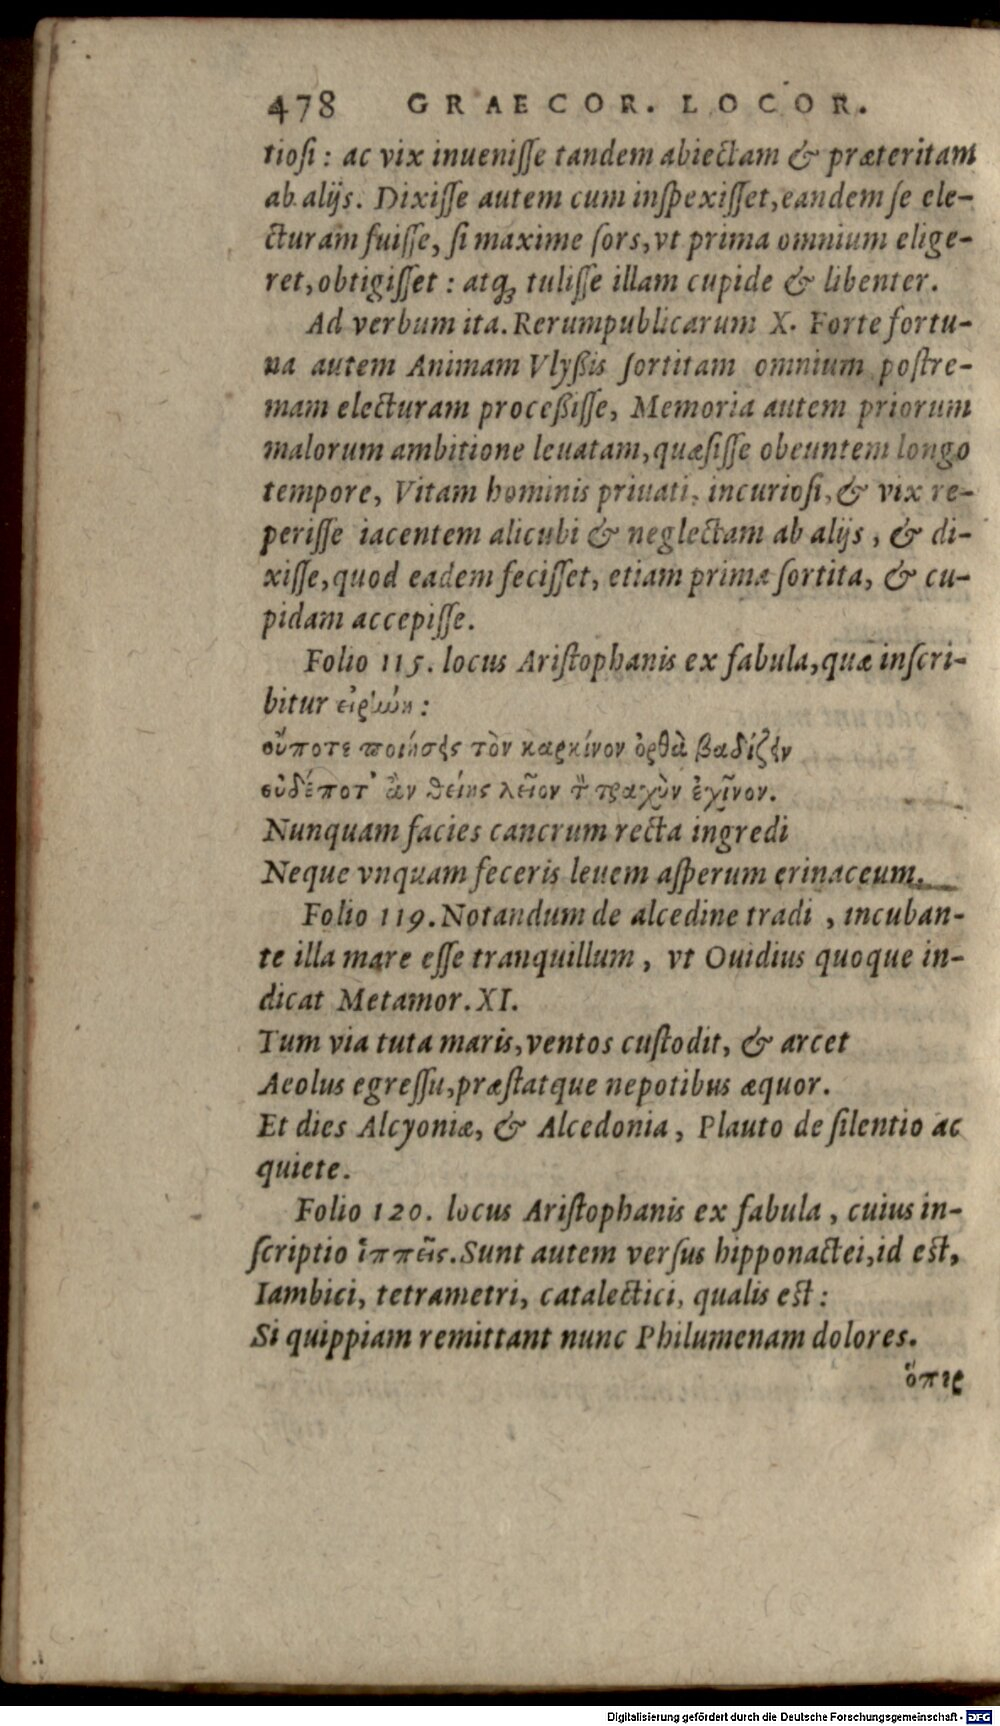 478 GRAECOR. LOCOR.
tiosi : ac vix inuenisse tandem abiectam & præteritam
ab alijs. Dixisse autem cum inspexisset, eandem se ele-
cturam fuisse, si maxime sors, vt prima omnium elige-
ret, obtigisset : atq; tulisse illam cupide & libenter.
Ad verbum ita. Rerumpublicarum X. Forte fortu-
na autem Animam Vlyßis sortitam omnium postre-
mam electuram proceßisse, Memoria autem priorum
malorum ambitione leuatam, quæsisse obeuntem longo
tempore, Vitam hominis priuati, incuriosi, & vix re-
perisse iacentem alicubi & neglectam ab alijs, & di-
xisse, quod eadem fecisset, etiam prima sortita, & cu-
pidam accepisse.
Folio 115. locus Aristophanis ex fabula, quæ inscri-
bitur εἰρήνη :
οὔποτε ποιήσεις τὸν καρκίνον ὀρθὰ βαδίζειν
οὐδέποτ' ἂν θείης λεῖον τὸν τραχὺν ἐχῖνον.
Nunquam facies cancrum recta ingredi
Neque vnquam feceris leuem asperum erinaceum.
Folio 119. Notandum de alcedine tradi, incuban-
te illa mare esse tranquillum, vt Ouidius quoque in-
dicat Metamor. XI.
Tum via tuta maris, ventos custodit, & arcet
Aeolus egressu, præstatque nepotibus æquor.
Et dies Alcyoniæ, & Alcedonia, Plauto de silentio ac
quiete.
Folio 120. locus Aristophanis ex fabula, cuius in-
scriptio ἱππεῖς. Sunt autem versus hipponactei, id est,
Iambici, tetrametri, catalectici, qualis est :
Si quippiam remittant nunc Philumenam dolores.
ὅπερ
Digitalisierung gefördert durch die Deutsche Forschungsgemeinschaft - DFG